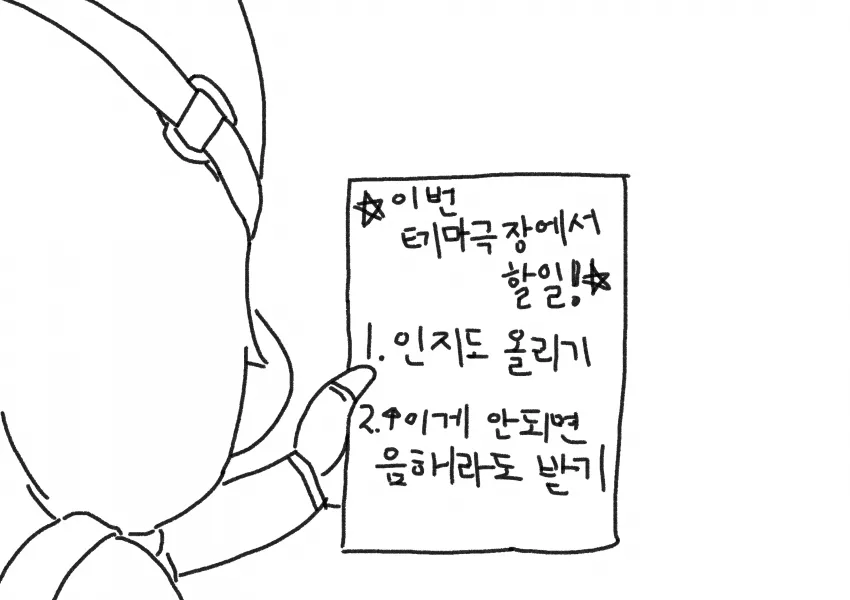 ☆이번
테마극장에서
할일!☆
1. 인지도 올리기
2.↑이게 안되면
음해라도 받기